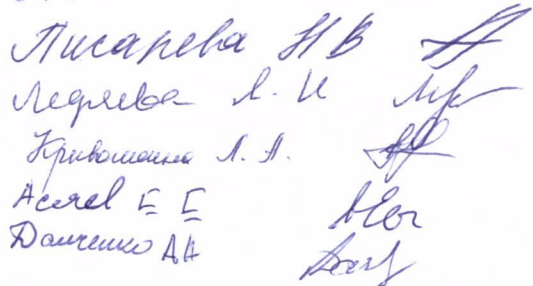 Писарева Н В
Ледяева Л. И
Кривошеина Л. А.
Асяев Е Е
Данченко Д А